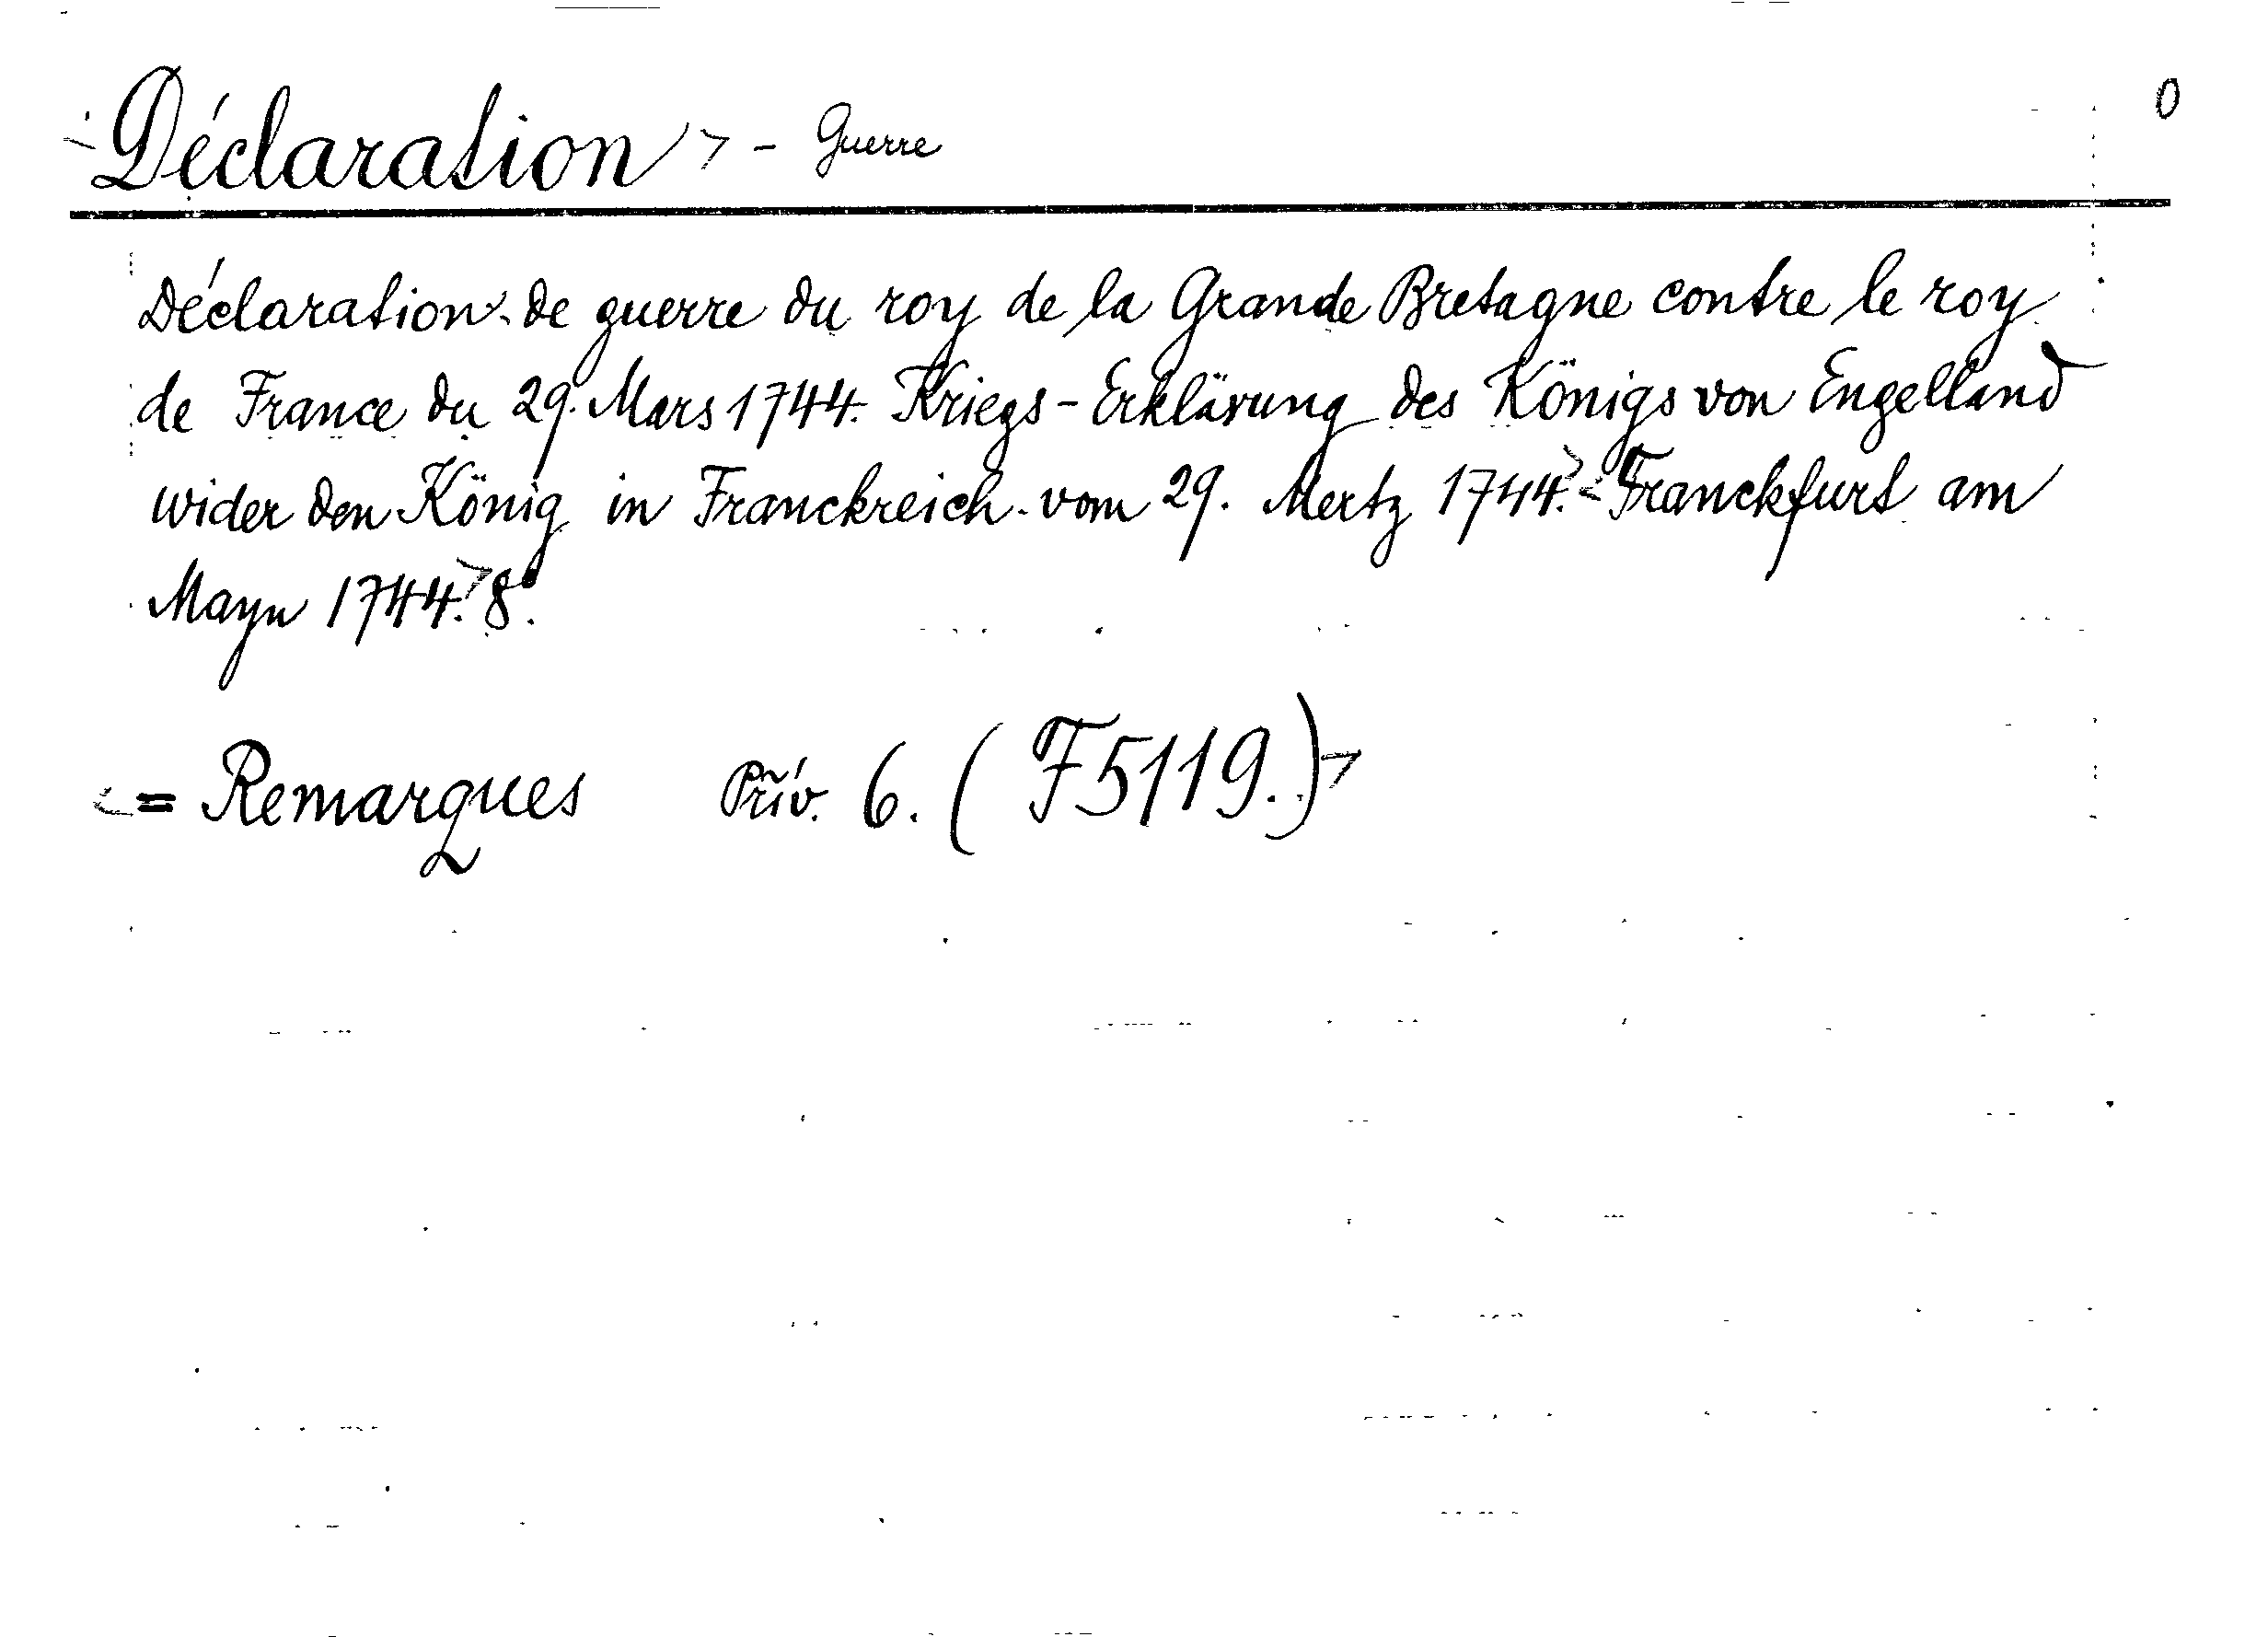 Déclaration > - Guerre 0
Déclaration de guerre du roy de la Grande Bretagne contre le roy
de France du 29. Mars 1744. Kriegs-Erklärung des Königs von Engelland
wider den König in Franckreich vom 29. Mertz 1744.> <Franckfurt am
Mayn 1744.> 8°.
<= Remarques Priv. 6. (F5119.)>